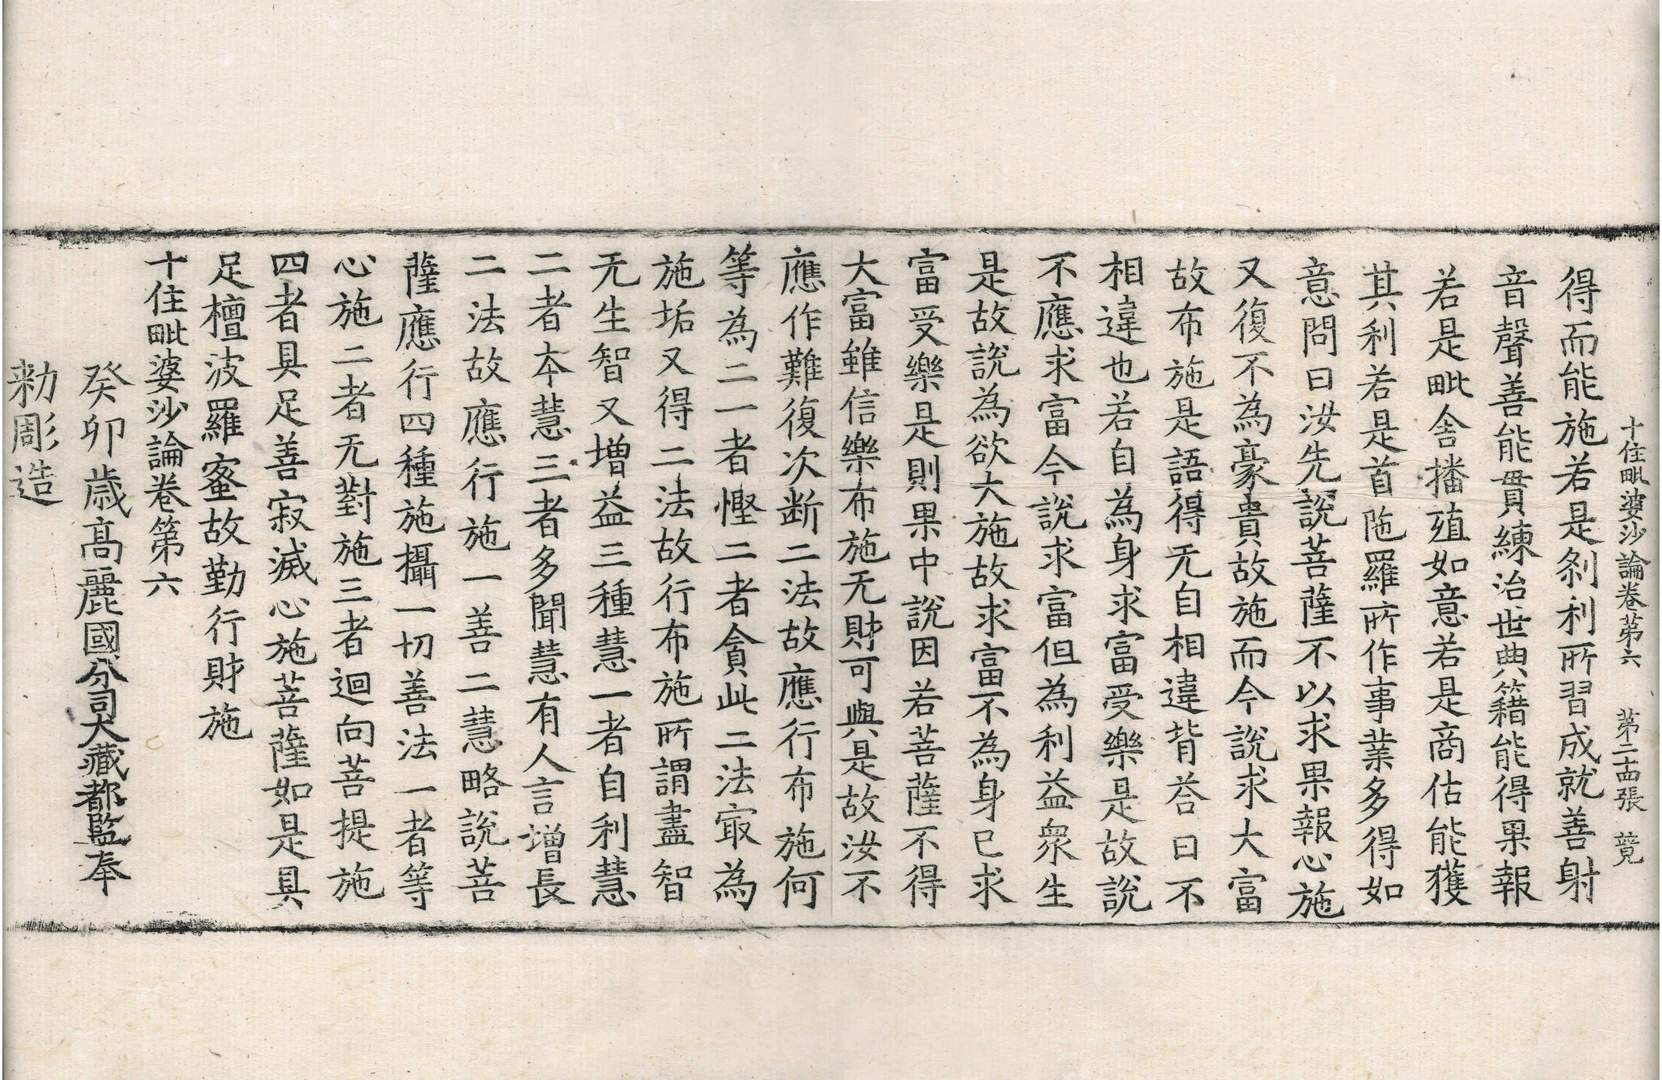 十住毗婆沙論卷第六 第二十四張 競
得而能施若是刹利所習成就善射
音聲善能貫練治世典籍能得果報
若是毗舍播殖如意若是商估能獲
其利若是首陁羅所作事業多得如
意問曰汝先說菩薩不以求果報心施
又復不為豪貴故施而今說求大富
故布施是語得无自相違背荅曰不
相違也若自為身求富受樂是故說
不應求富今說求富但為利益衆生
是故說為欲大施故求富不為身已求
富受樂是則果中說因若菩薩不得
大富雖信樂布施无財可與是故汝不
應作難復次断二法故應行布施何
等為二一者慳二者貪此二法㝡為
施垢又得二法故行布施所謂盡智
无生智又增益三種慧一者自利慧
二者本慧三者多聞慧有人言增長
二法故應行施一善二慧略說菩
薩應行四種施攝一切善法一者等
心施二者无對施三者迴向菩提施
四者具足善寂滅心施菩薩如是具
足檀波羅蜜故勤行財施
十住毗婆沙論卷第六
癸卯歲高麗國分司大藏都監奉
勑彫造